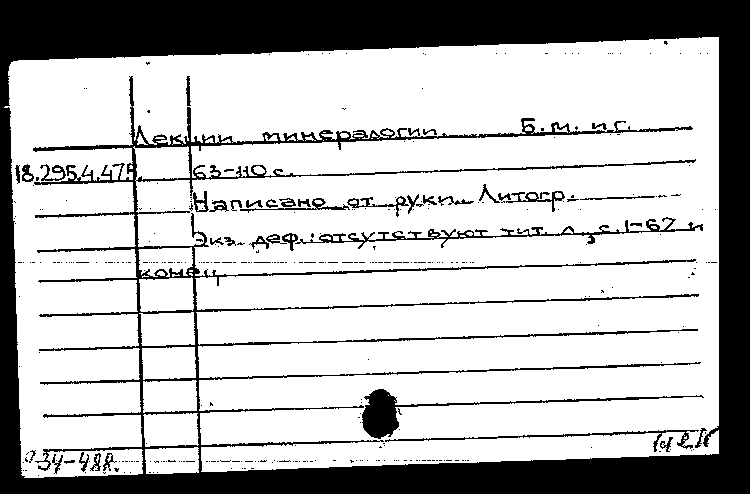 Лекции минералогии. Б.м. и г.
18.295.4.475. 63-110 с.
Написано от руки. Литогр.
Экз. деф.: отсутствуют тит. л., с. 1-62 и
конец
34-48